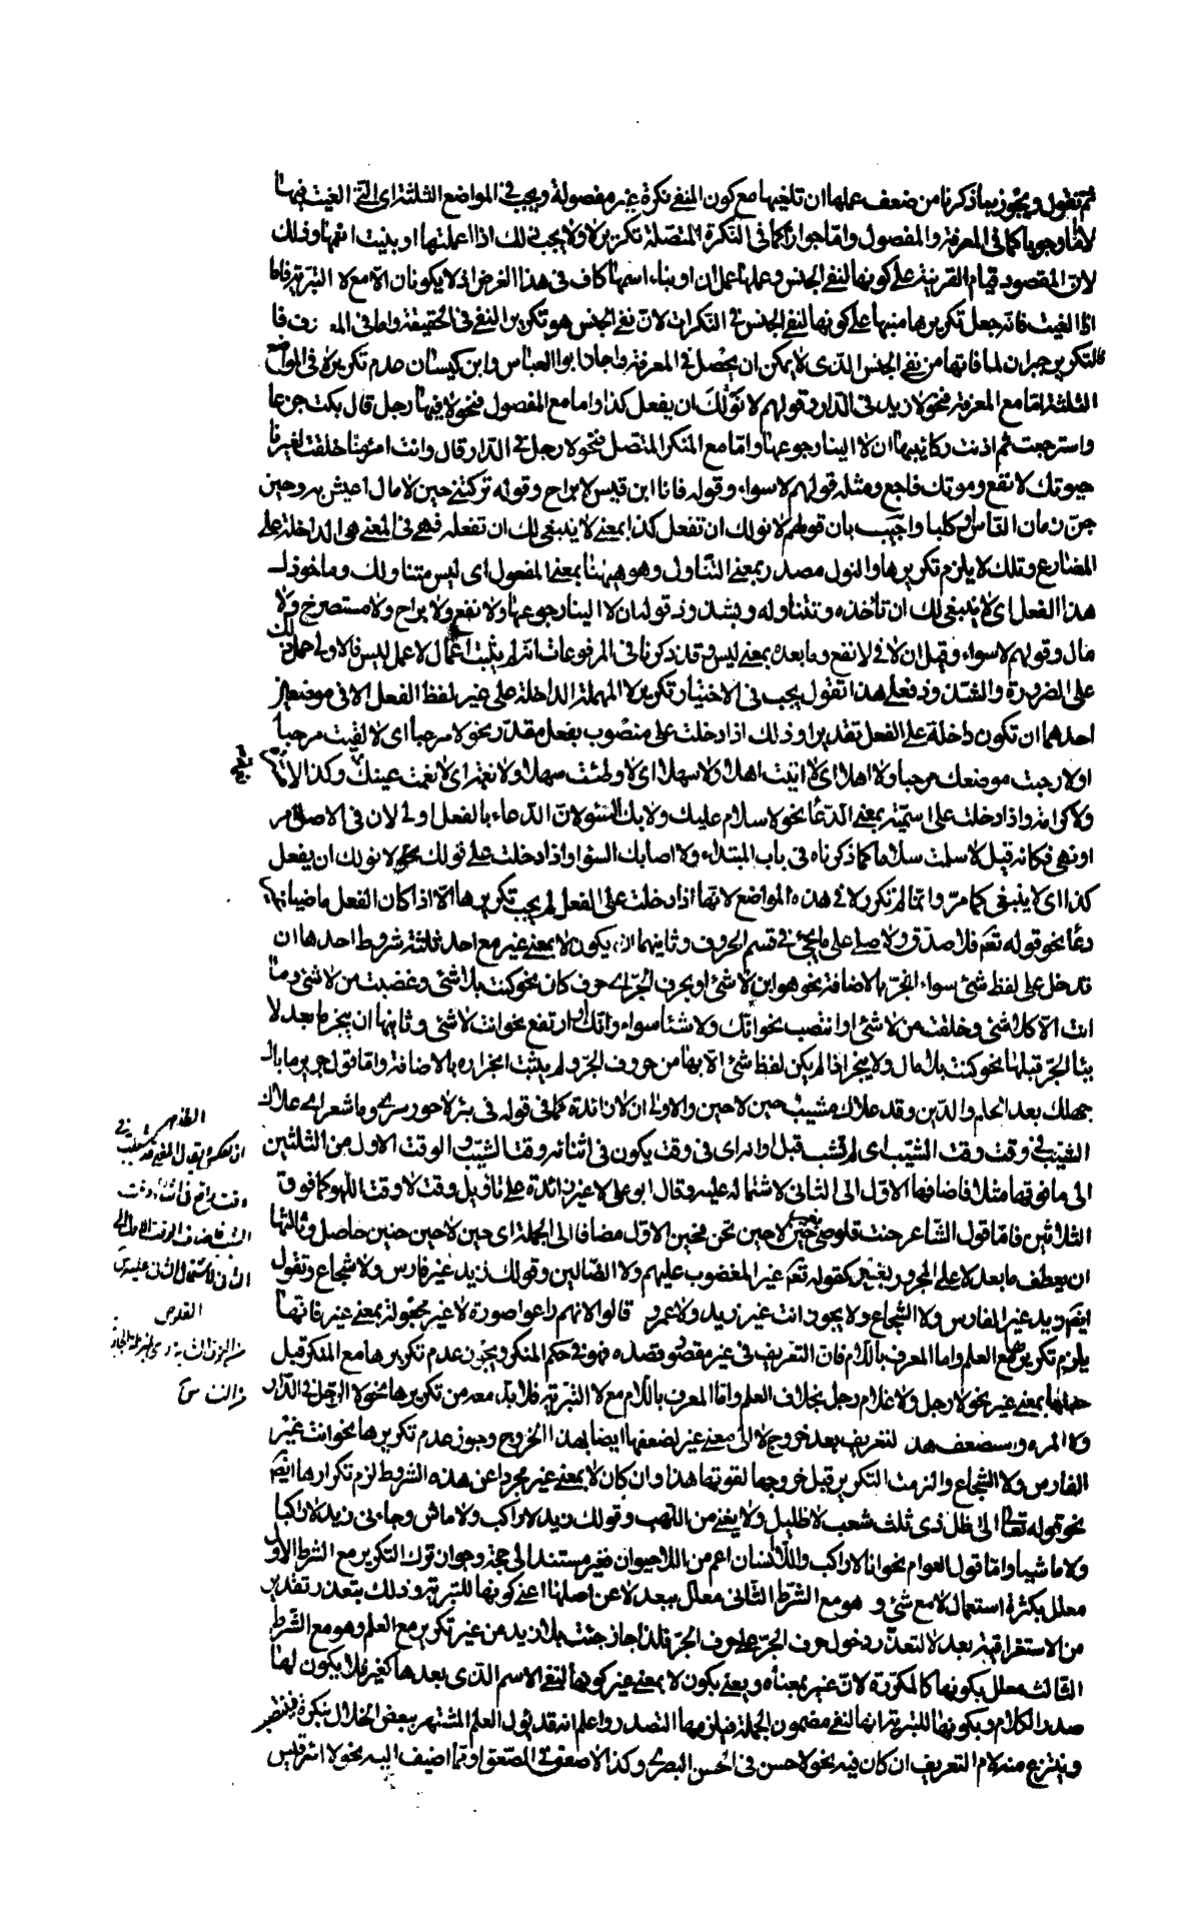 ثم نقول ويجوز بما ذكرنا من ضعف عملها ان تلغيها مع كون المنفي نكرة غير مفصولة ويجب في المواضع الثلثة اى التي الغيت فيها
لا اما وجوبا كما في المعرفة والمفصول واما جوازا كما في النكرة المتصلة تكرير لا ولا يجب ذلك اذا اعملتها او بنيت اسمها وذلك
لان المقصود قيام القرينة على كونها لنفي الجنس وعملها عمل ان او بناء اسمها كاف في هذا الغرض اذ لا يكونان الا مع لا التبرية فاما
اذا الغيت فانه جعل تكريرها منبها على كونها لنفي الجنس في النكرات لان نفي الجنس هو تكرير النفي في الحقيقة واما في المعارف فا
التكرير جبران لما فاتها من نفي الجنس الذى لا يمكن ان يحصل في المعرفة واجاز ابو العباس وابن كيسان عدم تكرير لا في المواضع
الثلثة اما مع المعرفة فنحو لا زيد في الدار وقولهم لا نولك ان يفعل كذا واما مع المفصول فنحو لا فيها رجل قال بكت جزعا
واسترجعت ثم اذنت ركائبها ان لا الينا رجوعها واما مع المنكر المتصل فنحو لا رجل في الدار قال وانت امرؤ منا خلقت لغيرنا
حيوتك لا نفع وموتك فاجع ومثله قولهم لا سواء وقوله فانا ابن قيس لا براح وقوله تركتني حين لا مال اعيش به وحين
جن زمان الناس او كلبا واجيب بان قولهم لا نولك ان تفعل كذا بمعنى لا ينبغي لك ان تفعله فهي في المعنى هي الداخلة على
المضارع وتلك لا يلزم تكريرها والنول مصدر بمعنى التناول وهو ههنا بمعنى المفعول اى ليس متناولك وماخوذك
هذا الفعل اى لا ينبغي لك ان تأخذه وتتناوله وبشذوذ قوله ان لا الينا رجوعها ولا نفع ولا براح ولا مستصرخ ولا
مال وقولهم لا سواء وقيل ان لا في لا نفع وما بعده بمعنى ليس وقد ذكرنا في المرفوعات انه لم يثبت اعمال لا عمل ليس فالاولى حمل ذلك
على الضرورة والشذوذ فعلى هذا نقول يجب في الاختيار تكرير لا المهملة الداخلة على غير لفظ الفعل الا في موضعين
احدهما ان تكون داخلة على الفعل تقديرا وذلك اذا دخلت على منصوب بفعل مقدر نحو لا مرحبا اى لا لقيت مرحبا
اولا رحبت موضعك مرحبا ولا اهلا اى لا اتيت اهلا ولا سهلا اى لا وطئت سهلا ولا نعمة اى لا نعمت عينك وكذا لا
ولا كرامة واذا دخلت على اسمية بمعنى الدعا نحو لا سلام عليك ولا بك السوء لان الدعاء بالفعل اولى لان في الاصل امر
او نهى فكانه قيل لا سلمت سلاما كما ذكرناه في باب المبتداء ولا اصابك السوء او اذا دخلت على نولك نحو لا نولك ان يفعل
كذا اى لا ينبغي كما مر وانما لم تكرر لا في هذه المواضع لانها اذا دخلت على الفعل لم يجب تكريرها الا اذا كان الفعل ماضيا
دعا نحو قوله تعم فلا صدق ولا صلى على ما يجئ في قسم الحروف وثانيهما ان يكون لا بمعنى غير مع احد ثلثة شروط احدها ان
تدخل على لفظ شئ سواء انجر بالاضافة نحو هو ابن لا شئ او بحرف الجر اى حرف كان نحو كنت بلا شئ وغضبت من لا شئ وما
انت الا كلا شئ وخلقت من لا شئ او انتصب نحو انك ولا شئا سواء وانك او ارتفع نحو انت لا شئ وثانيها ان ينجر ما بعد لا
بباء الجر قبلها نحو كنت بلا مال ولا ينجر اذا لم يكن لفظ شئ الا بها من حروف الجر ولم يثبت انجراره بالاضافة واما قول جرير ما بال
جهلك بعد الحلم والدين وقد علاك مشيب حين لا حين والاولى ان لا زائدة كما في قوله في بئر لا حور سرى وما شعر اى علاك
الشيب في وقت وقت الشيب اى لم تشب قبل اوانه اى في وقت يكون في اثنائه وقت الشيب والوقت الاول من الثلثين
الى ما فوقها مثلا فاضافها الاول الى الثاني لاشتماله عليه وقال ابو على لا غير زائدة على تاويل وقت لا وقت اللهو كما فوق
الثلاثين فاما قول الشاعر حنت قلوصي حين لا حين محن فحين الاول مضاف الى الجملة اى حين لا حين حنين حاصل وثالثها
ان يعطف ما بعد لا على المجرور بغير كقوله تعم غير المغضوب عليهم ولا الضالين وقولك زيد غير فارس ولا شجاع وتقول
ايضم زيد غير الفارس ولا الشجاع ولا يجوز انت غير زيد ولا عمرو قالوا لانهم راعوا صورة لا غير مجعولة بمعنى غير فانها
يلزم تكريرها مع العلم واما المعرف باللام فان التعريف في غير مقصود قصده فهو في حكم المنكر ويجوز عدم تكريرها مع المنكر قبل
جعلها بمعنى غير نحو لا رجل ولا غلام رجل بخلاف العلم واما المعرف باللام مع لا التبرية فلا بد معه من تكريرها نحو لا الرجل في الدار
ولا المرءة ويستضعف هذا التعريف بعد خروج لا الى معنى غير لضعفها ايضا بهذا الخروج وجوز عدم تكريرها نحو انت غير
الفارس ولا الشجاع والزمت التكرير قبل خروجها لقوتها هذا وان كان لا بمعنى غير مجردا عن هذه الشروط لزم تكرارها ايضم
نحو قوله تعالى الى ظل ذى ثلث شعب لا ظليل ولا يغني من اللهب وقولك زيد لا راكب ولا ماش وجاءنى زيد لا راكبا
ولا ماشيا واما قول العوام نحو انا لا راكب واللا انسان اعم من اللا حيوان فغير مستند الى حجة وجواز ترك التكرير مع الشرط الاول
معلل بكثرة استعمال لا مع شئ وهو مع الشرط الثانى معلل ببعد لا عن اصلها اعنى كونها للتبرية وذلك بتعذر تقدير
من الاستغراقية بعد لا لتعذر دخول حرف الجر على حرف الجر فلذا جاز جئت بلا زيد من غير تكرير مع العلم وهو مع الشرط
الثالث معلل بكونها كالمكررة لان غير بمعناه ويعنى بكون لا بمعنى غير كونها لنفي الاسم الذى بعدها كغير فلا يكون لها
صدر الكلام وبكونها للتبرية انها لنفي مضمون الجملة فيلزمها التصدر واعلم انه قد يؤول العلم المشتهر ببعض الخلال بنكرة فينتصب
وينتزع منه لام التعريف ان كان فيه نحو لا حسن في الحسن البصرى وكذا لا صعق في الصعق او مما اضيف اليه نحو لا امرءقيس